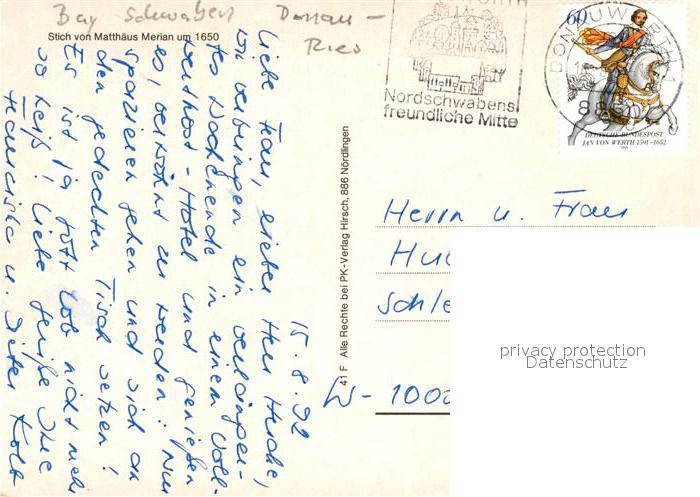 Bay Schwaben Donau-
Ries
Stich von Matthäus Merian um 1650
15.8.92
Liebe Frau, lieber Herr
wir verbringen ein
tes Wochenende in einem
- Hotel und genießen
es, verwöhnt zu werden: Nur
spazieren gehen und sich an
den gedeckten Tisch setzen!
Es ist ja Gott Lob nicht mehr
so heiß! Liebe Grüße Ihre
Franziska u. Dieter
41 F Alle Rechte bei PK-Verlag Hirsch, 886 Nördlingen
Nordschwabens
freundliche Mitte
DONAUWÖRTH 1
60
DEUTSCHE BUNDESPOST
JAN VON WERTH 1591-1652
Herrn u. Frau
W-1000
privacy protection
Datenschutz